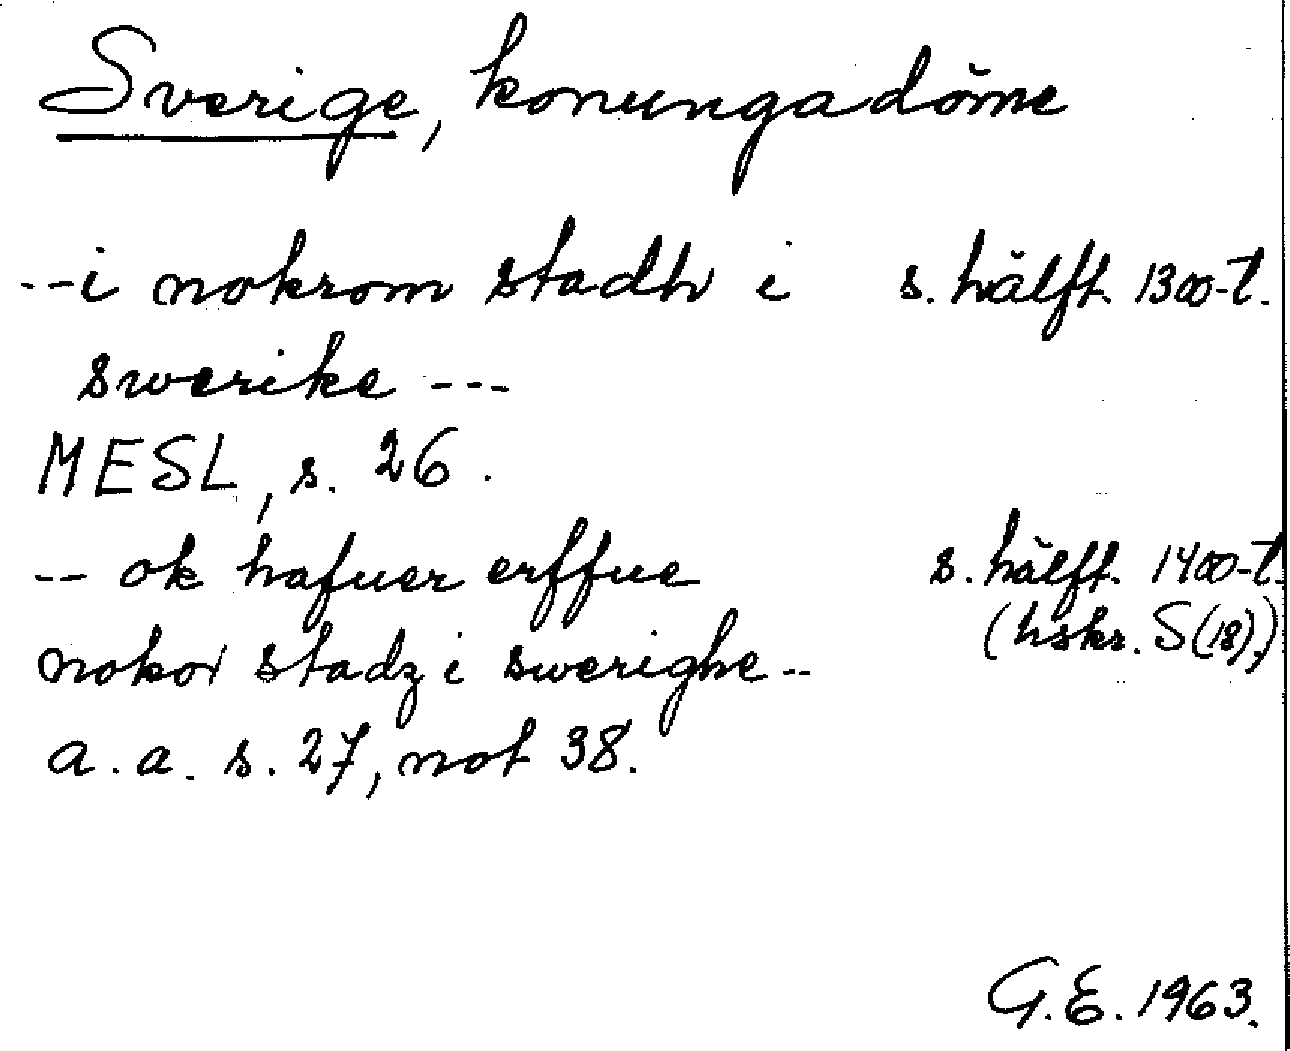 Sverige, konungadöme
--i nokrom stadh i s. hälft. 1300-t.
swerike ---
MESL, s. 26.
-- ok hafuer erffue s. hälft. 1400-t.
(hskr. S(18),)
nokor stadz i swerighe --
a. a. s. 27, not 38.
G.E. 1963.